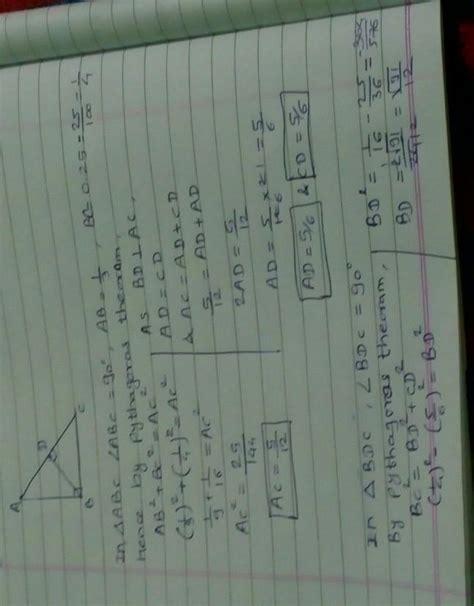 A
D
B
C
In △ABC ∠ABC = 90°, AB = 1/3, BC = 0.25 = 25/100 = 1/4
Hence by pythagoras theoram,
AB² + BC² = AC²
(1/3)² + (1/4)² = AC²
1/9 + 1/16 = AC²
AC² = 25/144
AC = 5/12
AS BD ⊥ AC,
AD = CD
& AC = AD + CD
5/12 = AD + AD
2AD = 5/12
AD = 5/6
& CD = 5/6
In △BDC, ∠BDC = 90°
By pythagoras theoram,
BC² = BD² + CD²
BD² = 1/16 - 25/36